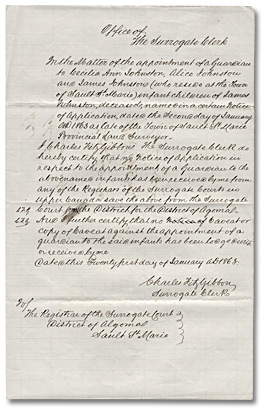 Office of
The Surrogate Clerk
In the Matter of the appointment of a Guardian
to Cecilia Ann Johnston, Alice Johnston
and James Johnston (who reside at the Town
of Sault Ste Marie) infant children of James
Johnston, deceased, named in a certain Notice
of Application, dated the Second day of January
AD 1863 as late of the Town of Sault Ste Marie
Provincial Land Surveyor.
I Charles FitzGibbon, The Surrogate Clerk do
hereby certify that no Notice of Application in
respect to the appointment of a Guardian to the
above named infants has been received by me from
any of the Registrars of the Surrogate Courts in
Upper Canada save the above from the Surrogate
Court for the District for the District of Algoma.
And I further certify that no Caveat or
copy of Caveat against the appointment of a
guardian to the said infants has been lodged with
or received by me.
Dated this Twenty first day of January AD 1863.
Charles FitzGibbon
Surrogate Clerk
To/
The Registrar of the Surrogate Court
District of Algoma
Sault Ste Marie